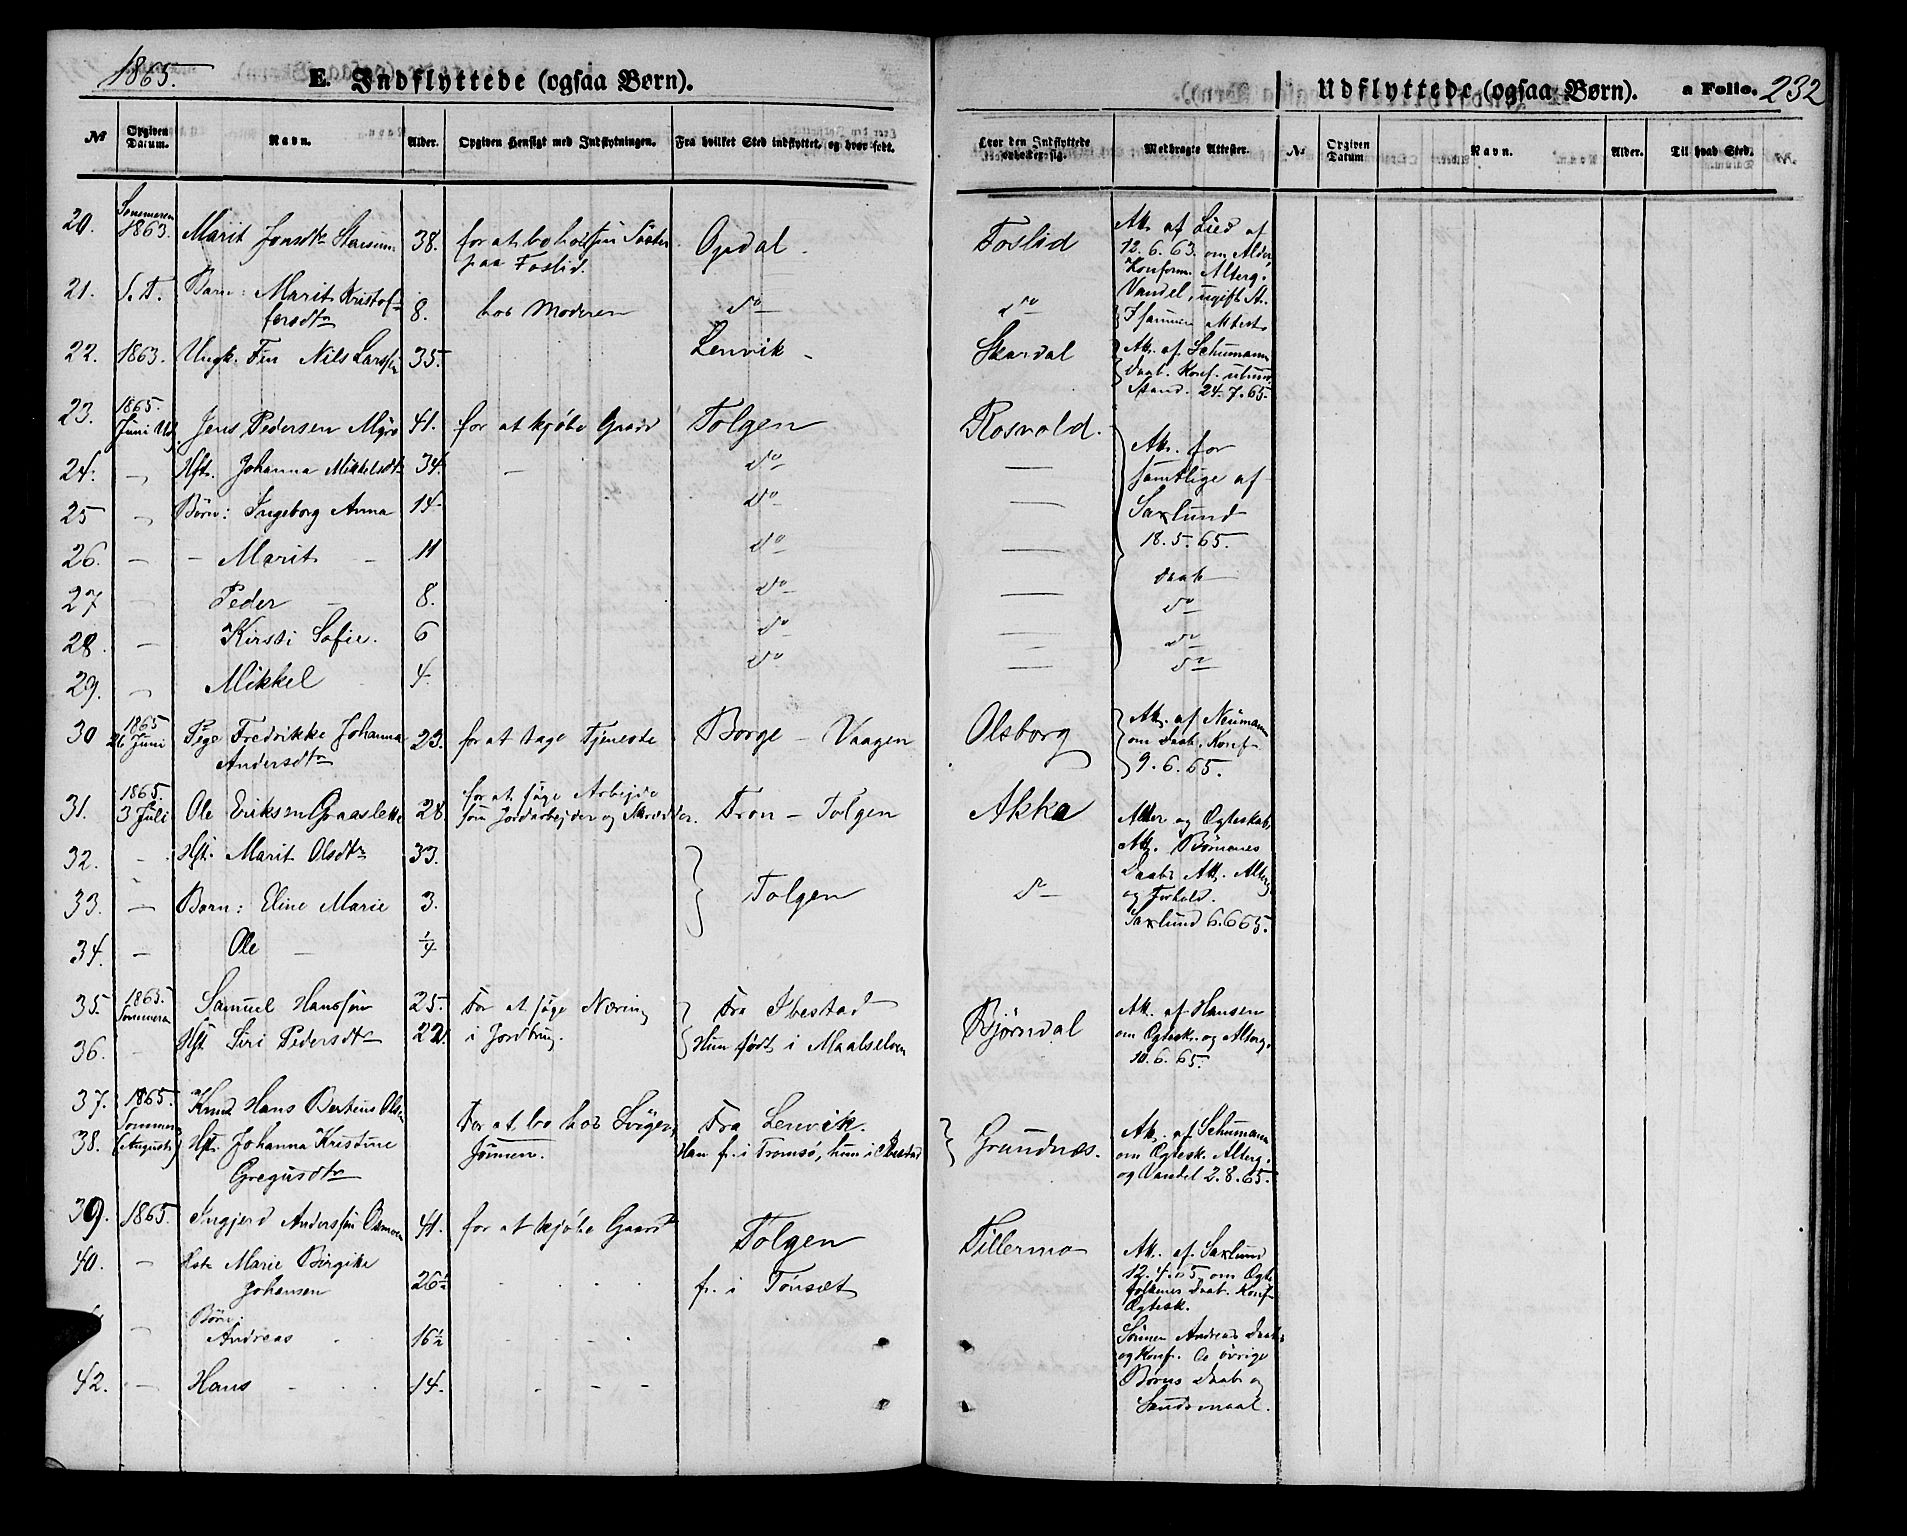 1865.
E. Indflyttede (ogsaa Børn).
Udflyttede (ogsaa Børn).
a Folio. 232
No Opgiven Datum. Navn. Alder. Opgiven Hensigt med Indflytningen. Fra hvilket Sted indflyttet, og hvor født. Hvor den Indflyttede opholder sig. Medbragte Attester. No Opgiven Datum Navn. Alder. Til hvad Sted.
20. Sommeren 1863. Marit Jonsdtr 38. for at bo hos sin Søster paa Foslid. Opdal. Foslid Att. af Lied af 12.6.63. om Alder, Konform. Alterg. Vandel, ugift St.
21. S. D. Barn: Marit Kristoffersdtr 8. hos Moderen do do I samme Attest
22. 1863. Ungk. Fin Nils Larssen 35. Lenvik Skardal Att. af Schumann Daab. Konf. Stand. 24.7.65.
23. 1865. Juni Jens Pedersen Myro 41. for at kjøbe Gaard Tolgen Rosvold. Att. for samtlige af Saxlund 18.5.65.
24. - Hst. Johanna Mikkelsdtr 34. - do -
25 - Børn: Ingeborg Anna 14 do -
26. - - Marit - 11 do - Daab
27 - Peder - 8. do - do
28. - Kirsti Sofie. 6 do - do
29. - Mikkel 4. do - do
30 1865 26 Juni Pige Fredrikke Johanna Andersdtr 23. for at tage Tjeneste Borge - Vaagen Olsborg Att. af Neumann om Daab, Konf. 9.6.65.
31. 1865. 3 Juli Ole Eriksen Graaslette 28. for at søge Arbejde som Jordarbejder og Skrædder. Tron - Tolgen Akka Alder og Ægteskabs Att. Børnenes Daabs Att. Alterg og Forhold. Saxlund 6.6.65.
32. - Hst. Marit Olsdtr 33. Tolgen do
33. - Børn: Eline Marie 3.
34. - Ole - 1/4
35. 1865. Sommeren Samuel Hanssen 25. For at søge Næring i Jordbrug. Fra Ibestad Bjørndal Att. af Hansen om Ægtesk. og Alterg. 10.6.65.
36. - Hst Siri Pedersdtr 22. Hun født i Maalselven
37. 1865. Sommer (August) Knud Hans Bertius Olsen For at bo hos Svigersønnen. Fra Lenvik. Grundnæs. Att. af Schumann om Ægtesk. Alterg. og Vandel 2.8.65.
38. Hst. Johanna Kristine Gregusdtr Han f. i Tromsø, hun i Ibestad
39. 1865. Ingjerd Anderssen Osmoen 41. for at kjøbe Gaard Tolgen Fillermo Att. af Saxlund 12.4.65, om Ægtefolkenes Daab. Konf. Ægtesk.
40. - Hst. Marie Birgitte Johansen 26 1/2 f. i Tønset
- Børn: Andreas 16 1/2 Sønnen Andreas Daab og Konf. De øvrige Børns Daab og
42. - Hans - 14. - - -